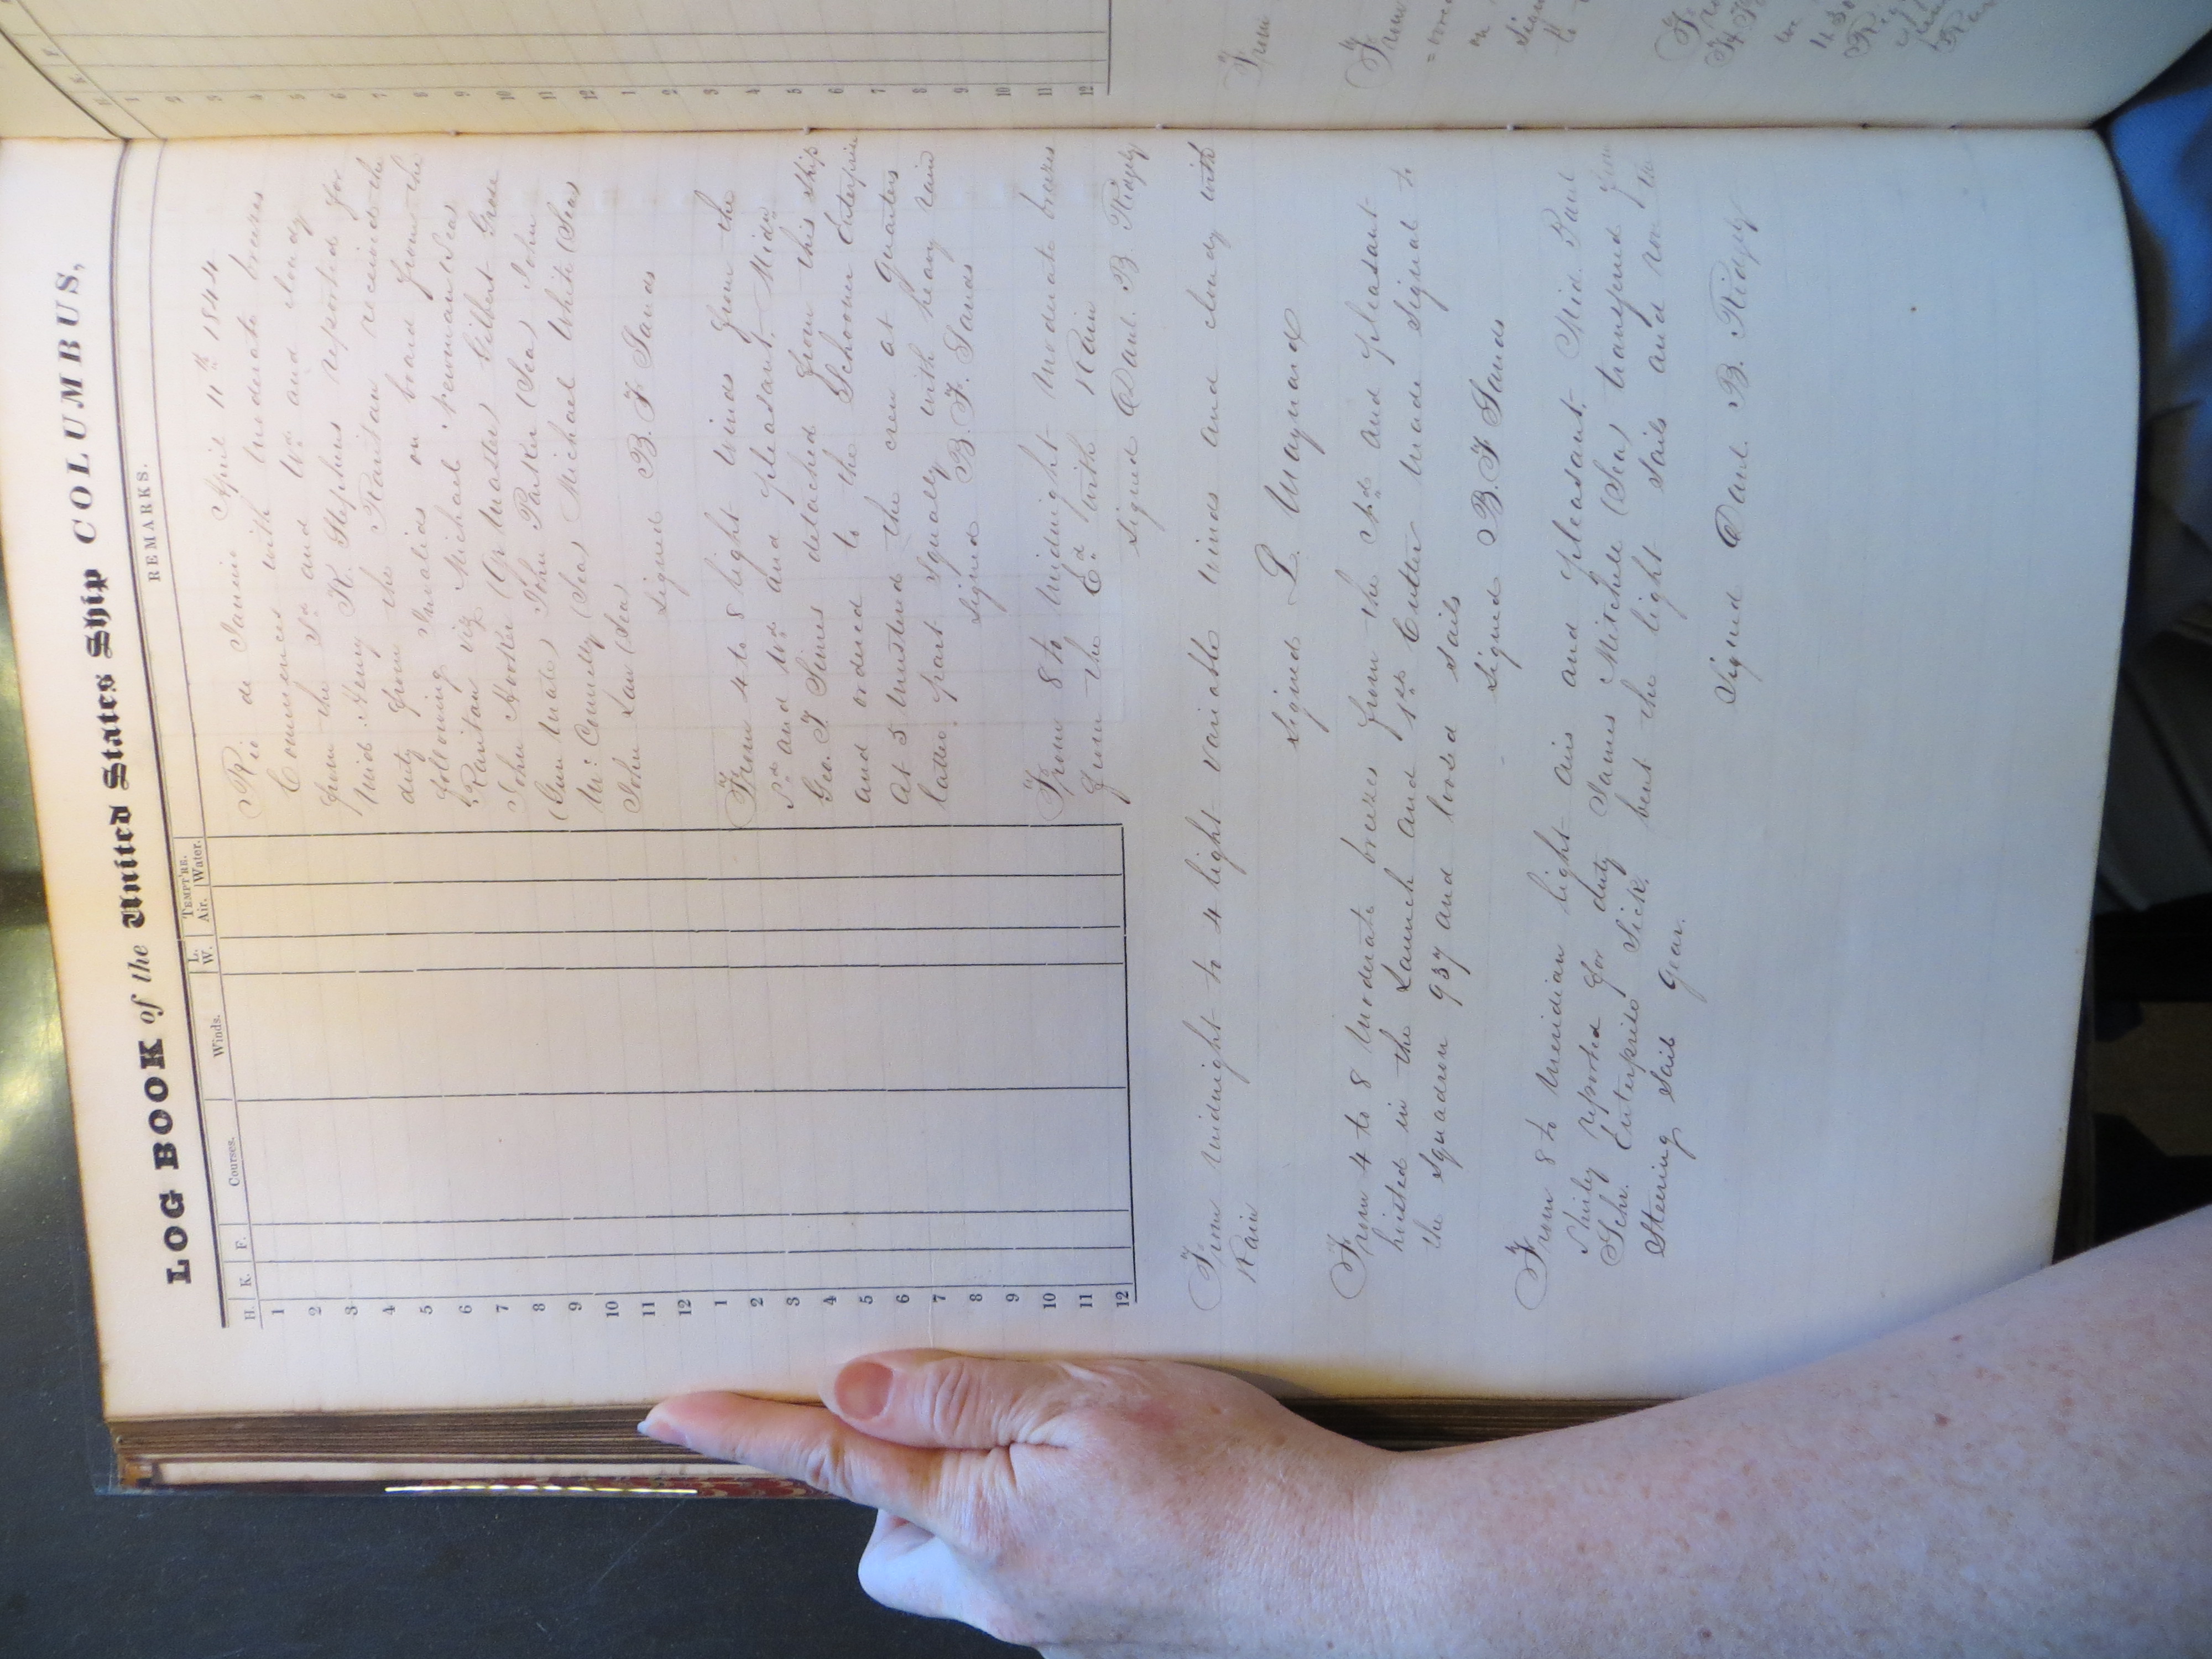 LOG BOOK of the United States Ship COLUMBUS,
H. K. F. Courses. Winds. L. W. TEMPT'RE. Air. Water. REMARKS.
1
2
3
4
5
6
7
8
9
10
11
12
1
2
3
4
5
6
7
8
9
10
11
12
Rio de Janeiro April 11th 1844
Commences with moderate breezes
from the Sd and Wd and cloudy
Mid. Henry K. Stephens reported for
duty from the Raritan received the
following Invalids on board from the
"Raritan viz Michael (Sea)
John Hooker (Qr Master) Gilbert
(Gun Mate) John Parker (Sea) John
McConnelly (Sea) Michael White (Sea)
John Law (Sea)
Signed B. F. Sands
From 4 to 8 light winds from the
Sd and Wd and pleasant. Midn
Geo. T. Simes detached from this Ship
and ordered to the Schooner Enterprise
At 5 mustered the crew at quarters
latter part squally with heavy rain
Signed B. F. Sands
From 8 to midnight moderate breezes
from the Ed with Rain
Signed Danl. B. Ridgely
From midnight to 4 light variable winds and cloudy with
Rain
Signed L. Maynard
From 4 to 8 moderate breezes from the Nd and pleasant
hoisted in the Launch and 1st Cutter made signal to
the Squadron 937 and loosed sails
Signed B. F Sands
From 8 to meridian light airs and pleasant. Mid. Paul
Shirley reported for duty James Mitchell (Sea) transferred from
Schr. Enterprise Sick. bent the light sails and
Steering Sail gear.
Signed Danl. B. Ridgely
H K F
1
2
3
4
5
6
7
8
9
10
11
12
1
2
3
4
5
6
7
8
9
10
11
12
From
From